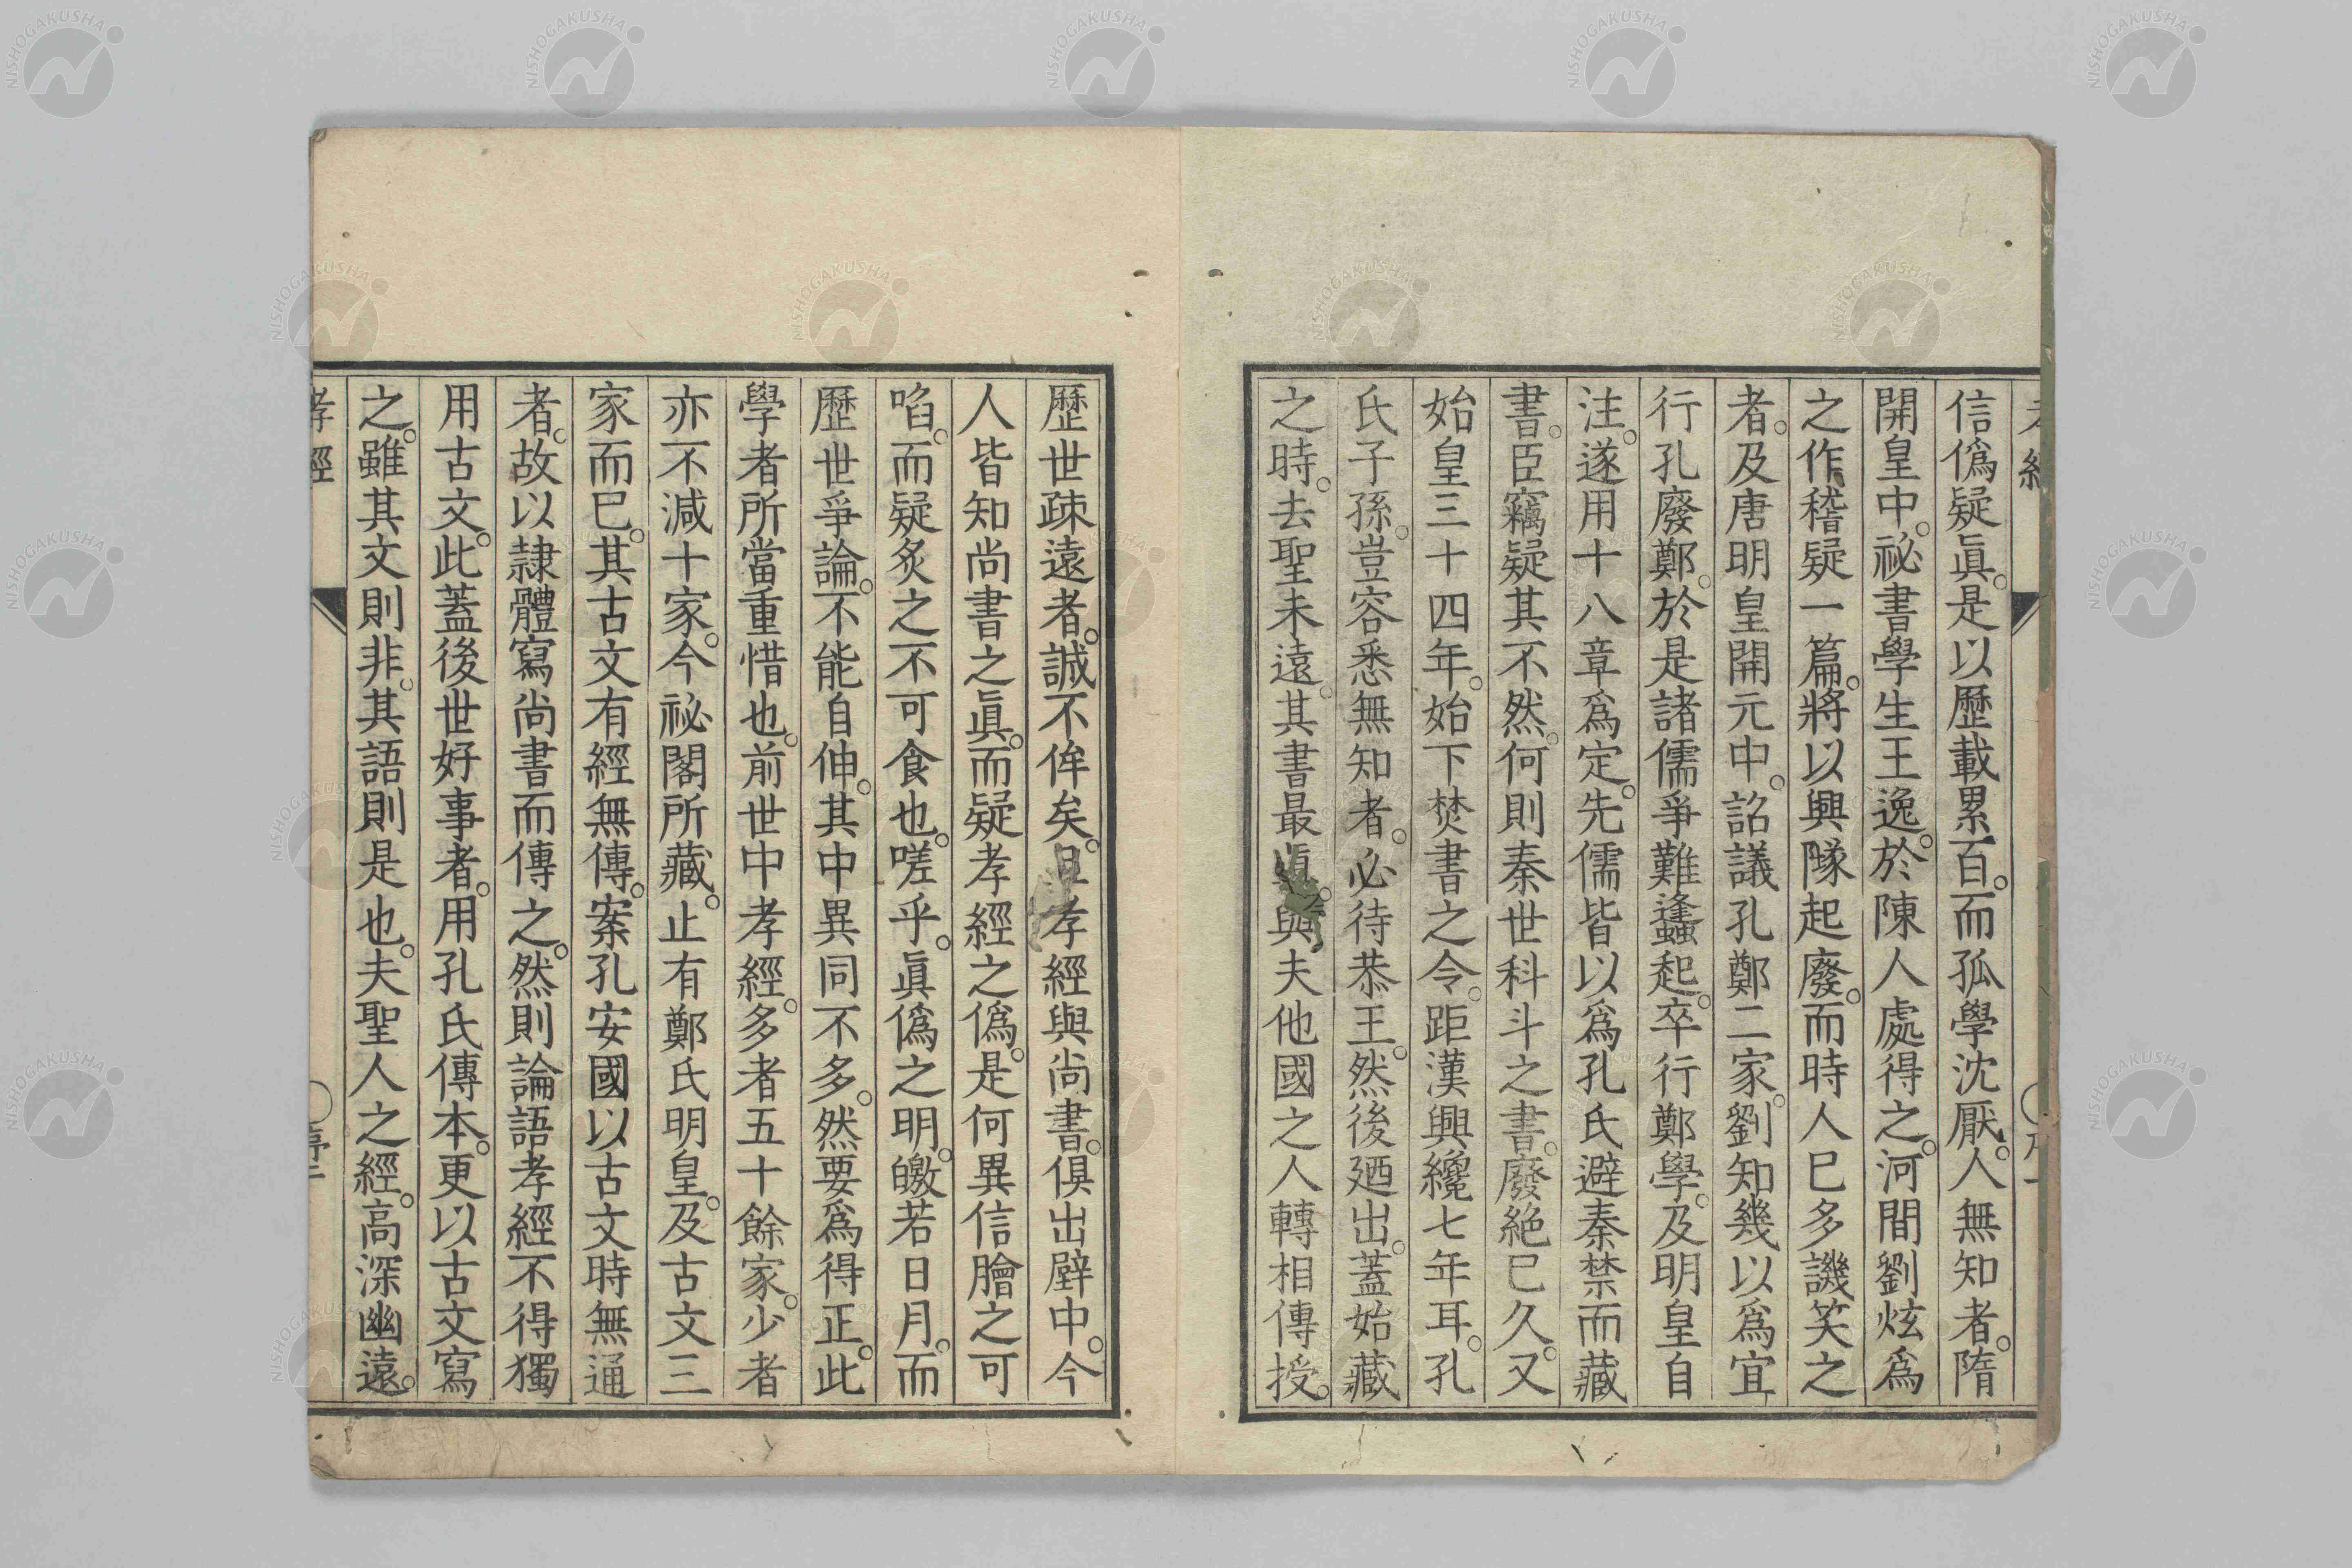 信僞疑眞。是以歷載累百。而孤學沈厭。人無知者。隋
開皇中。祕書學生王逸。於陳人處得之。河間劉炫爲
之作稽疑一篇。將以興隊起廢。而時人已多譏笑之
者。及唐明皇開元中。詔議孔鄭二家。劉知幾以爲宜
行孔廢鄭。於是諸儒爭難蠭起。卒行鄭學。及明皇自
注。遂用十八章爲定。先儒皆以爲孔氏避秦禁而藏
書。臣竊疑其不然。何則秦世科斗之書。廢絕已久。又
始皇三十四年。始下焚書之令。距漢興纔七年耳。孔
氏子孫。豈容悉無知者。必待恭王。然後廼出。蓋始藏
之時。去聖未遠。其書最眞。與夫他國之人轉相傳授。
歷世疎遠者。誠不侔矣。且孝經與尚書。俱出壁中。今
人皆知尚書之眞。而疑孝經之僞。是何異信膾之可
啗。而疑炙之不可食也。嗟乎。眞僞之明。皦若日月。而
歷世爭論。不能自伸。其中異同不多。然要爲得正。此
學者所當重惜也。前世中孝經。多者五十餘家。少者
亦不減十家。今祕閣所藏。止有鄭氏明皇。及古文三
家而已。其古文有經無傳。案孔安國以古文時無通
者。故以隷體寫尚書而傳之。然則論語孝經不得獨
用古文。此蓋後世好事者。用孔氏傳本。更以古文寫
之。雖其文則非。其語則是也。夫聖人之經。高深幽遠。
孝經
NISHOGAKUSHA